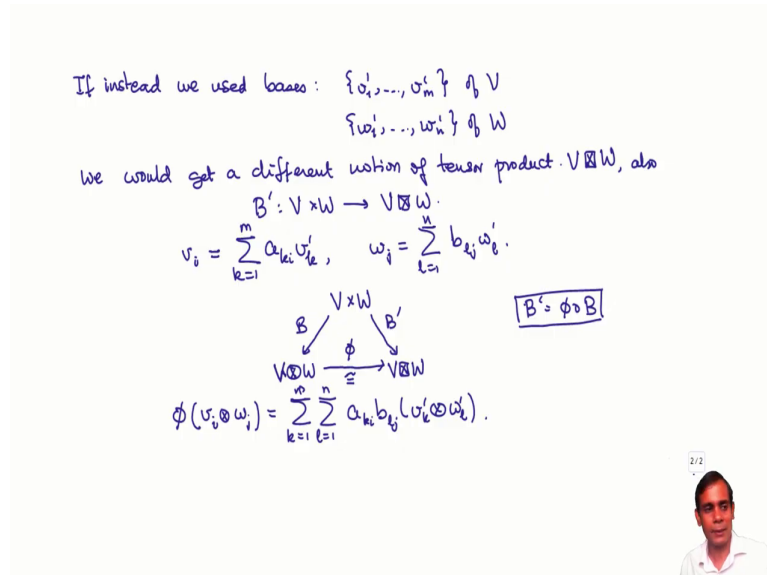 If instead we used bases: {v₁', ..., vₘ'} of V
{w₁', ..., wₙ'} of W
We would get a different notion of tensor product. V⊠W, also
B': V×W → V⊠W.
vᵢ = ∑_{k=1}^{m} a_{ki} v'_k, w_j = ∑_{l=1}^{n} b_{lj} w'_l.
V×W
B B' B' = φ∘B
φ
V⊗W → V⊠W
≅
φ(vᵢ⊗w_j) = ∑_{k=1}^{m} ∑_{l=1}^{n} a_{ki} b_{lj} (v'_k ⊗ w'_l).
2/2